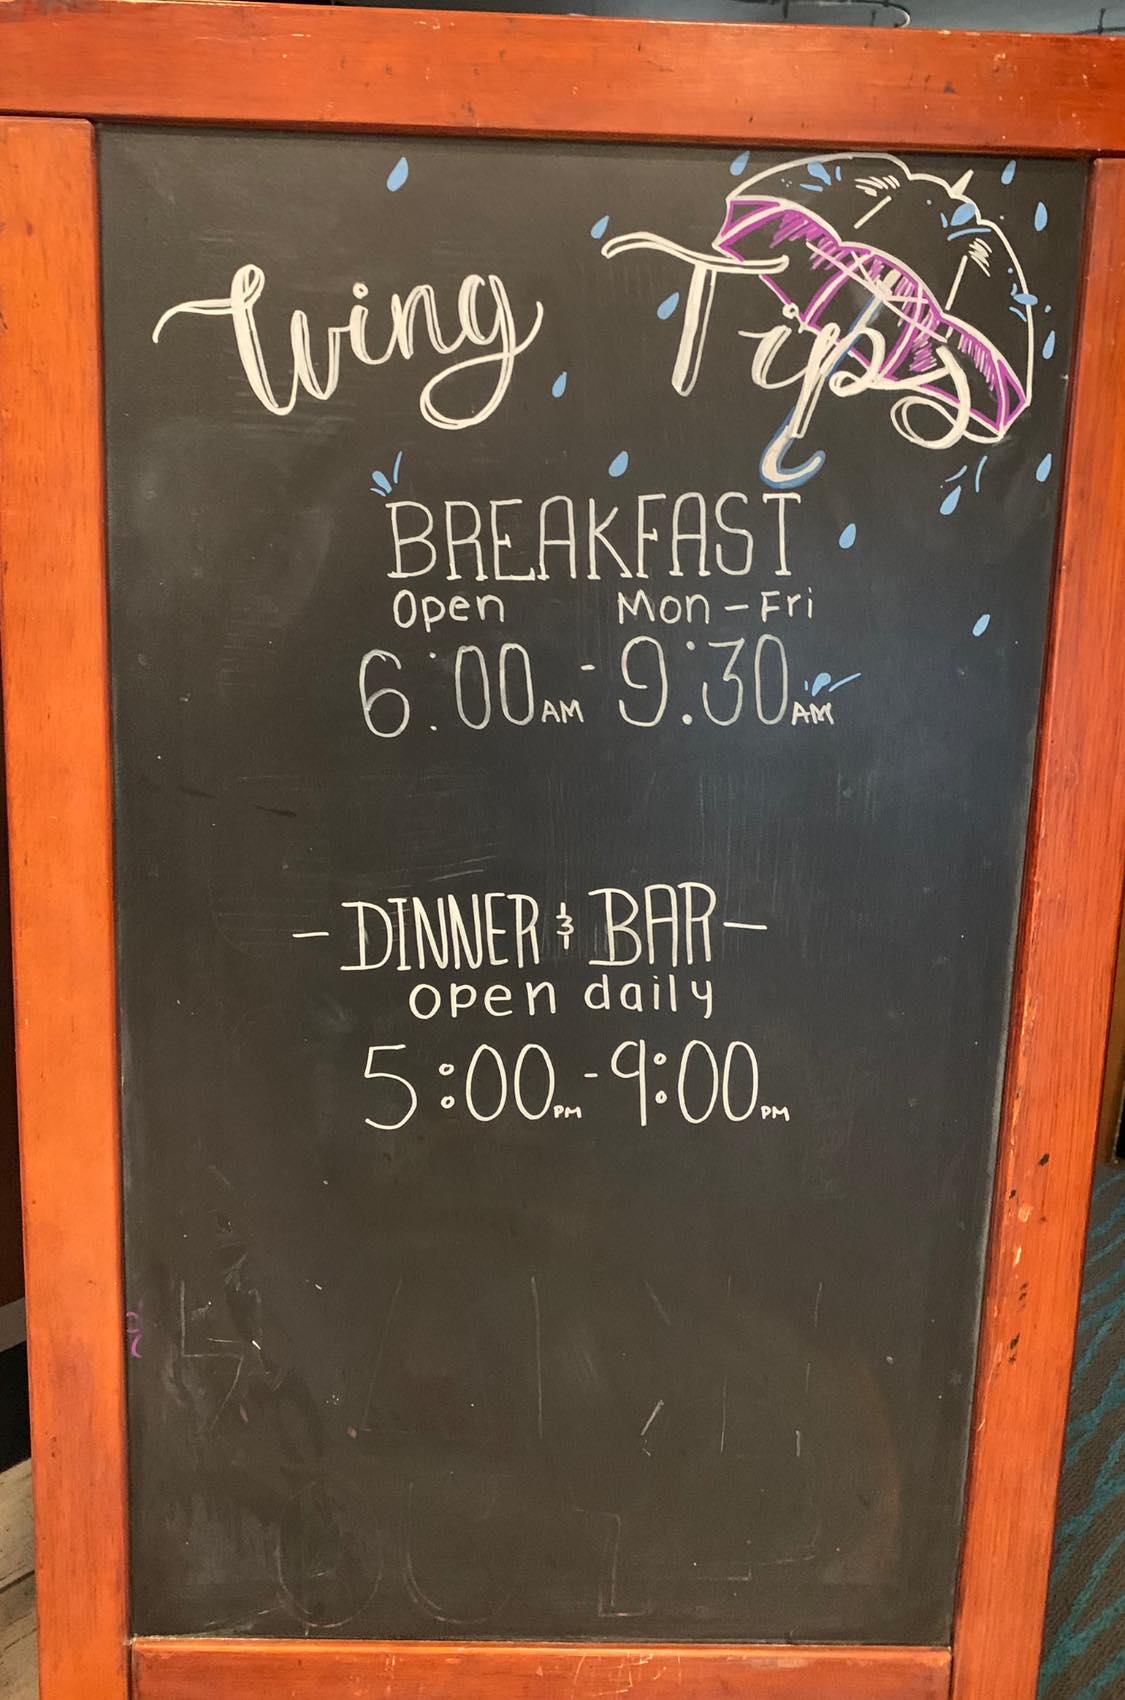 Wing Tips
BREAKFAST
Open Mon - Fri
6:00 AM - 9:30 AM
- DINNER & BAR -
open daily
5:00 PM - 9:00 PM